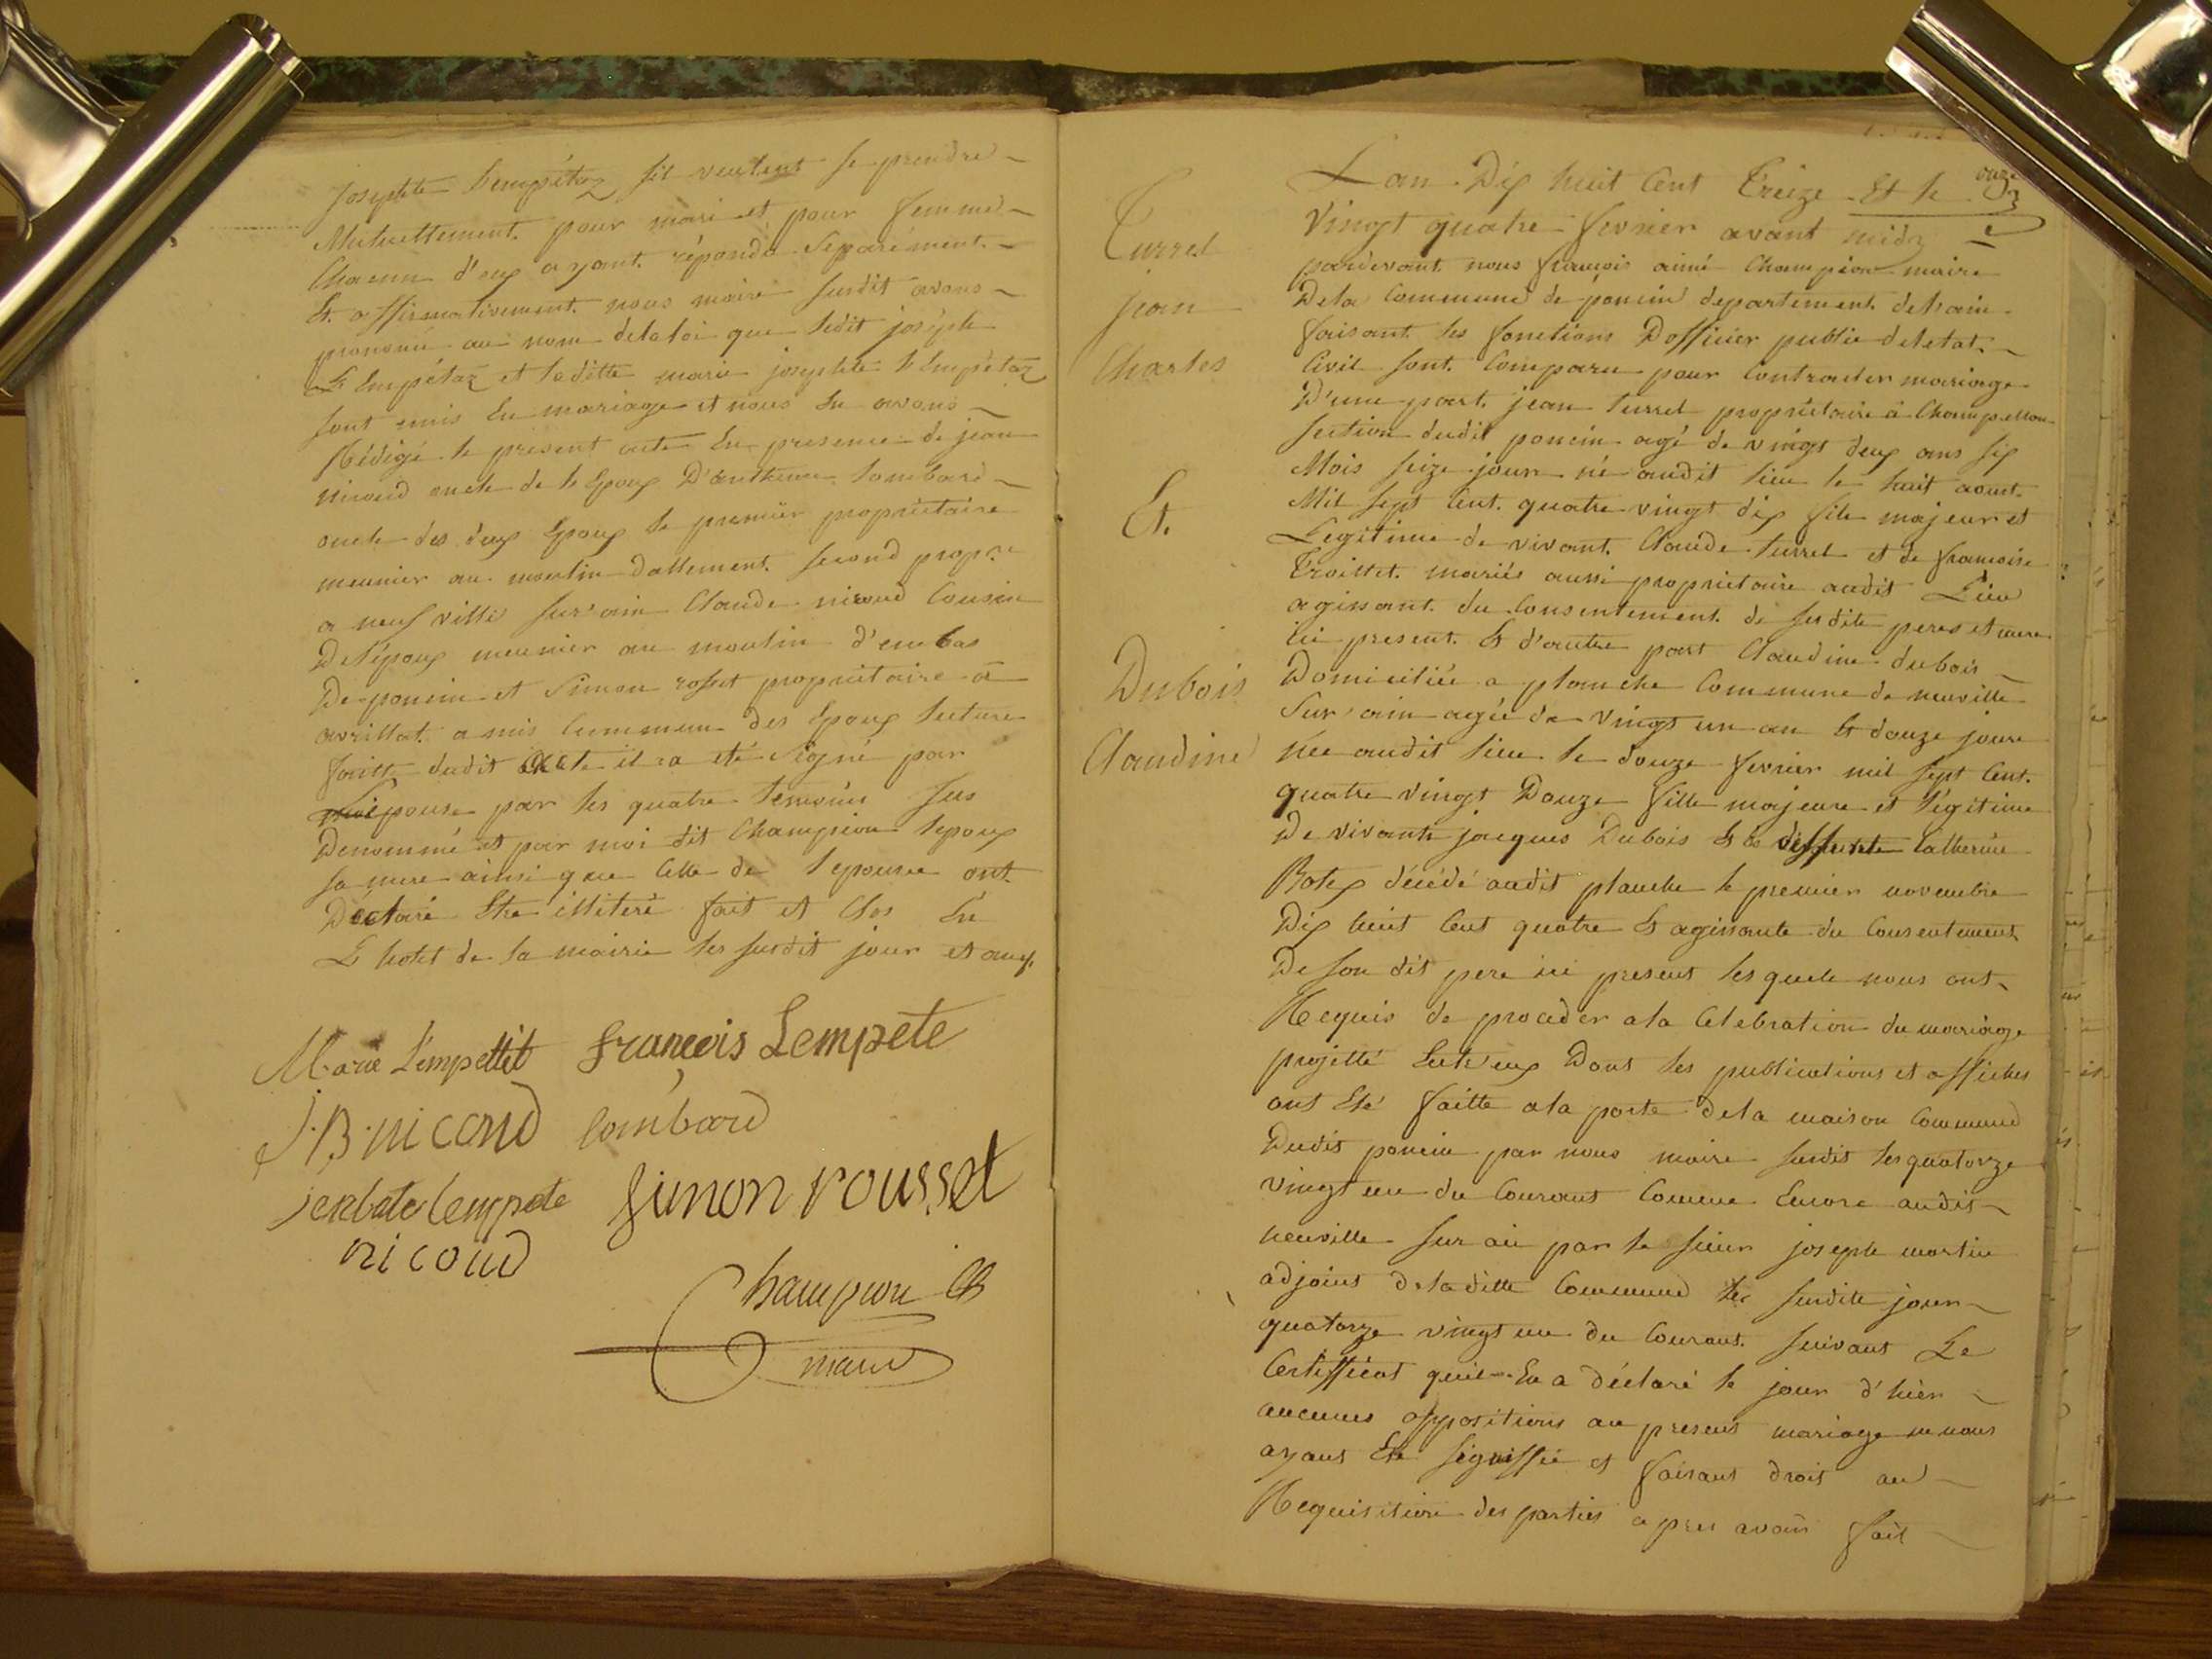 josephte Lempétaz sil veulent se prendre
Mutuellement pour mari et pour femme
Chacun d'eux ayant répondu Separément
Et affirmativement nous maire susdit avons
prononcé au nom delaloi que ledit joseph
Lempétaz et laditte marie josephte Lempétaz
sont unis En mariage et nous En avons
Rédigé le présent acte En presence de jean
nicoud oncle de le Epoux D'anthême Lombard
oncle des deux Epoux le premier propriétaire
meunier au moulin dallement second prop.re
a neuf ville sur ain Claude nicoud Cousin
Delépoux meunier au moulin d'embas
De poncin et Simon rosset propriétaire à
avrillat amis Commun des Epoux lecture
faitte dudit acte il a été Signé par
L'épouse par les quatre temoins sus
Denommé et par moi dit Champion lepoux
sa mere ainsi que Celle de lepouse ont
Déclaré Etre illiteré fait et Clos En
L'hotel de la mairie les susdit jour et an
Marie Lempettit françois Lempete
J.B. nicoud Lombard
Lempete Simon rousset
nicoud
Champion
maire
Turrel
jean
Charles
Et.
Dubois
Claudine
onze
Lan Dix huit Cent Treize Et le
Vingt quatre fevrier avant midy
pardevant nous françois aimé Champion maire
Dela Commune de poncin departement delain
faisant les fonctions Dofficier public deletat
Civil sont Comparu pour Contracter mariage
D'une part jean turrel propriétaire à Champeillon
section dudit poncin agé de vingt deux ans six
Mois seize jour né audit lieu le huit aoust
Mil sept Cent quatre vingt dix fils majeur et
Legitime de vivant Claude turrel et de francoise
Troillet mariés aussi propriétaire audit Lieu
agissant du Consentement de sesdits peres et mere
ici present Et d'autre part Claudine dubois
Domiciliée a planche Commune de neuville
Sur ain agée de vingt un an Et douze jours
Née audit lieu le douze fevrier mil sept Cent
quatre vingt Douze fille majeure et légitime
De vivante jacques Dubois Et de deffunte Catherine
Botex décédé audit planche le premier novembre
Dix huit Cent quatre Et agissante du Consentement
De son dit pere ici present lesquels nous ont
Requis de proceder ala Celebration du mariage
projetté Entreux Dont les publications et affiches
ont Eté faitte ala porte dela maison Commune
Dudit poncin par nous maire susdit les quatorze
vingt un du Courant Comme Encore audit
neuville sur ain par le sieur joseph martin
adjoint deladitte Commune les susdits jour
quatorze vingt un du Courant suivant Le
Certifficat quil En a déclaré le jour d'hier
aucunes oppositions au present mariage ne nous
ayant Eté signiffié et faisant droit au
Requisition des parties apres avoir fait